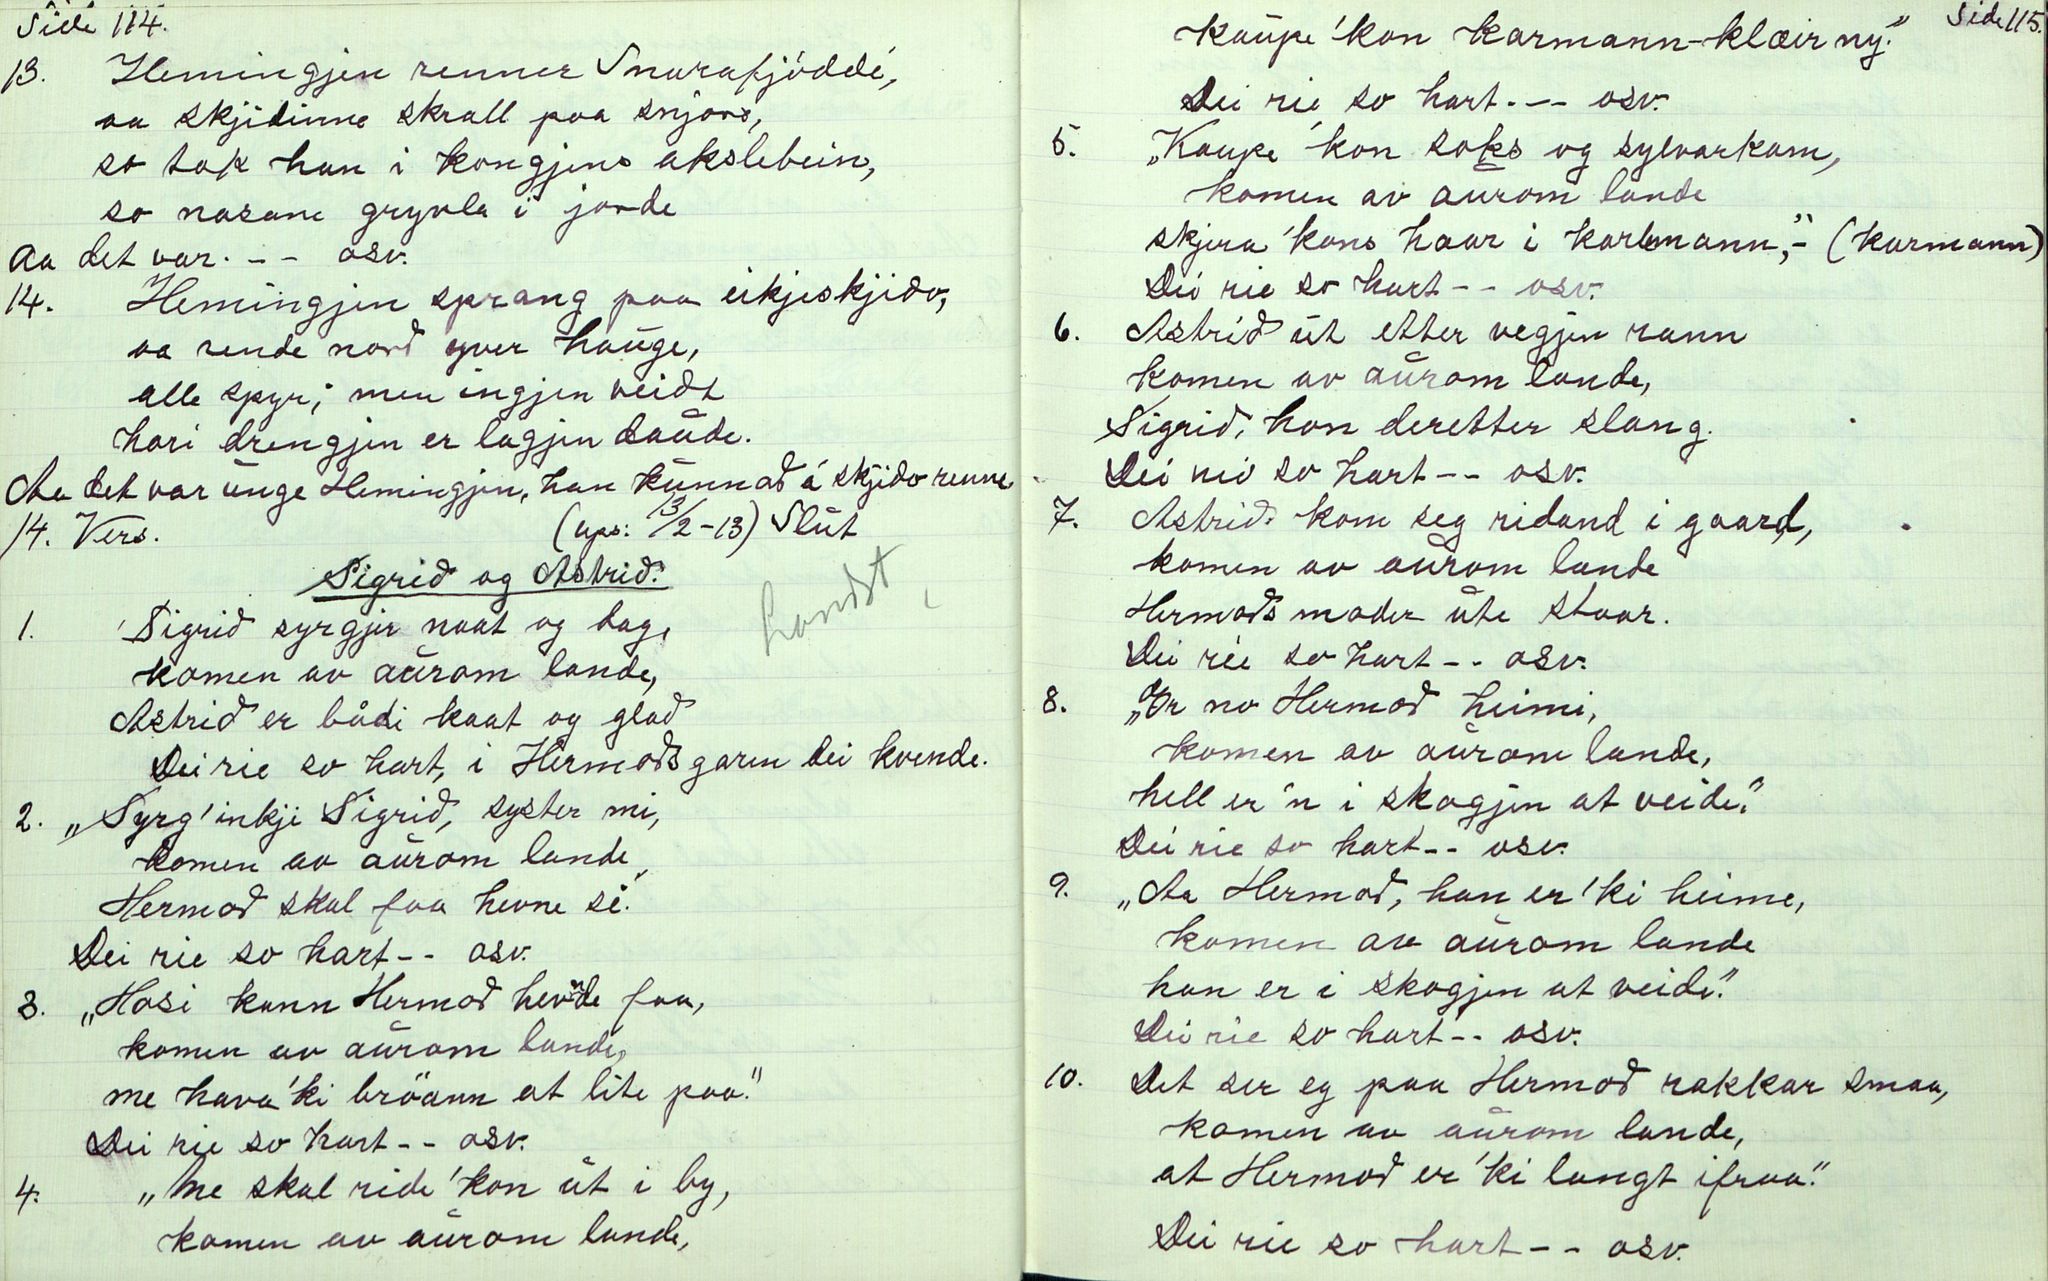 Side 114.
13. Hemingjen renner Snarafjøddé,
aa skjidinne skrall paa snjoro,
so tok han i kongjens akslebein,
so nasane gryvla i jorde
Aa det var. - - osv.
14. Hemingjen sprang paa eikjeskjido,
aa rende norđ yver hauge,
alle spyr; men ingjen veidt
hori drengjen er lagjen dauđe.
Aa det var unge Hemingjen, han kunnađ á skjido renne
14. Vers. (ups: 13/2-13) Slut
Sigriđ og Astriđ.
Landst,
1. Sigriđ syrgjer naat og dag,
komen av aurom lande,
Astriđ er bådi kaat og glađ
Dei rie so hart, i Hermođsgaren dei kvende.
2. „Syrg' inkji Sigriđ, syster mi,
komen av aurom lande,
Hermođ skal faa hevne sé.
Dei rie so hart-- osv.
3. „Hosi kann Hermođ hevnde faa,
komen av aurom lande,
me hava'ki bröann at lite paa."
Dei rie so hart-- osv.
4. „Me skal ride 'kon út i by,
komen av aurom lande,
Side 115.
kaupe 'kon karmann-klæir ny."
Dei rie so hart.-- osv.
5. „Kaupe 'kon soks og sylvarkam,
komen av aurom lande
skjera 'kans haar i karlmann,"- (karmann)
Dei rie so hart-- osv.
6. Astriđ út etter vegjen rann
komen av aurom lande,
Sigriđ, hon deretter slang.
Dei rie so hart-- osv.
7. Astriđ kom seg ridand i gaard,
komen av aurom lande
Hermođs moder úte staar.
Dei rie so hart-- osv.
8. „Er no Hermođ heimi,
komen av aurom lande,
hell er 'n i skogjen at veide."
Dei rie so hart-- osv.
9. „Aa Hermođ, han er 'ki heime,
komen av aurom lande
han er i skogjen at veide."
Dei rie so hart-- osv.
10. Det ser eg paa Hermođ rakkar smaa,
komen av aurom lande,
at Hermođ er 'ki langt ifraa."
Dei rie so hart-- osv.